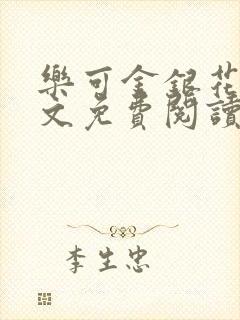 樂可金銀花
文免費閱讀
李生忠